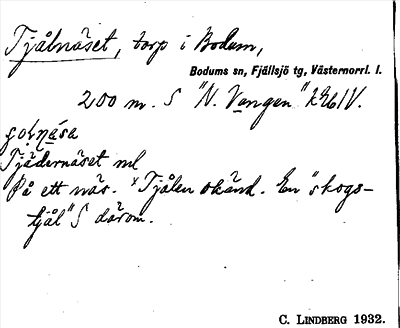 Tjålnäset, torp i Bodum,
Bodums sn, Fjällsjö tg, Västernorrl. l.
200 m. S "N. Vangen"
Tjädernäset ml
På ett näs. ˣTjålen okänd. En "skogs-
tjål" S därom.
C. LINDBERG 1932.